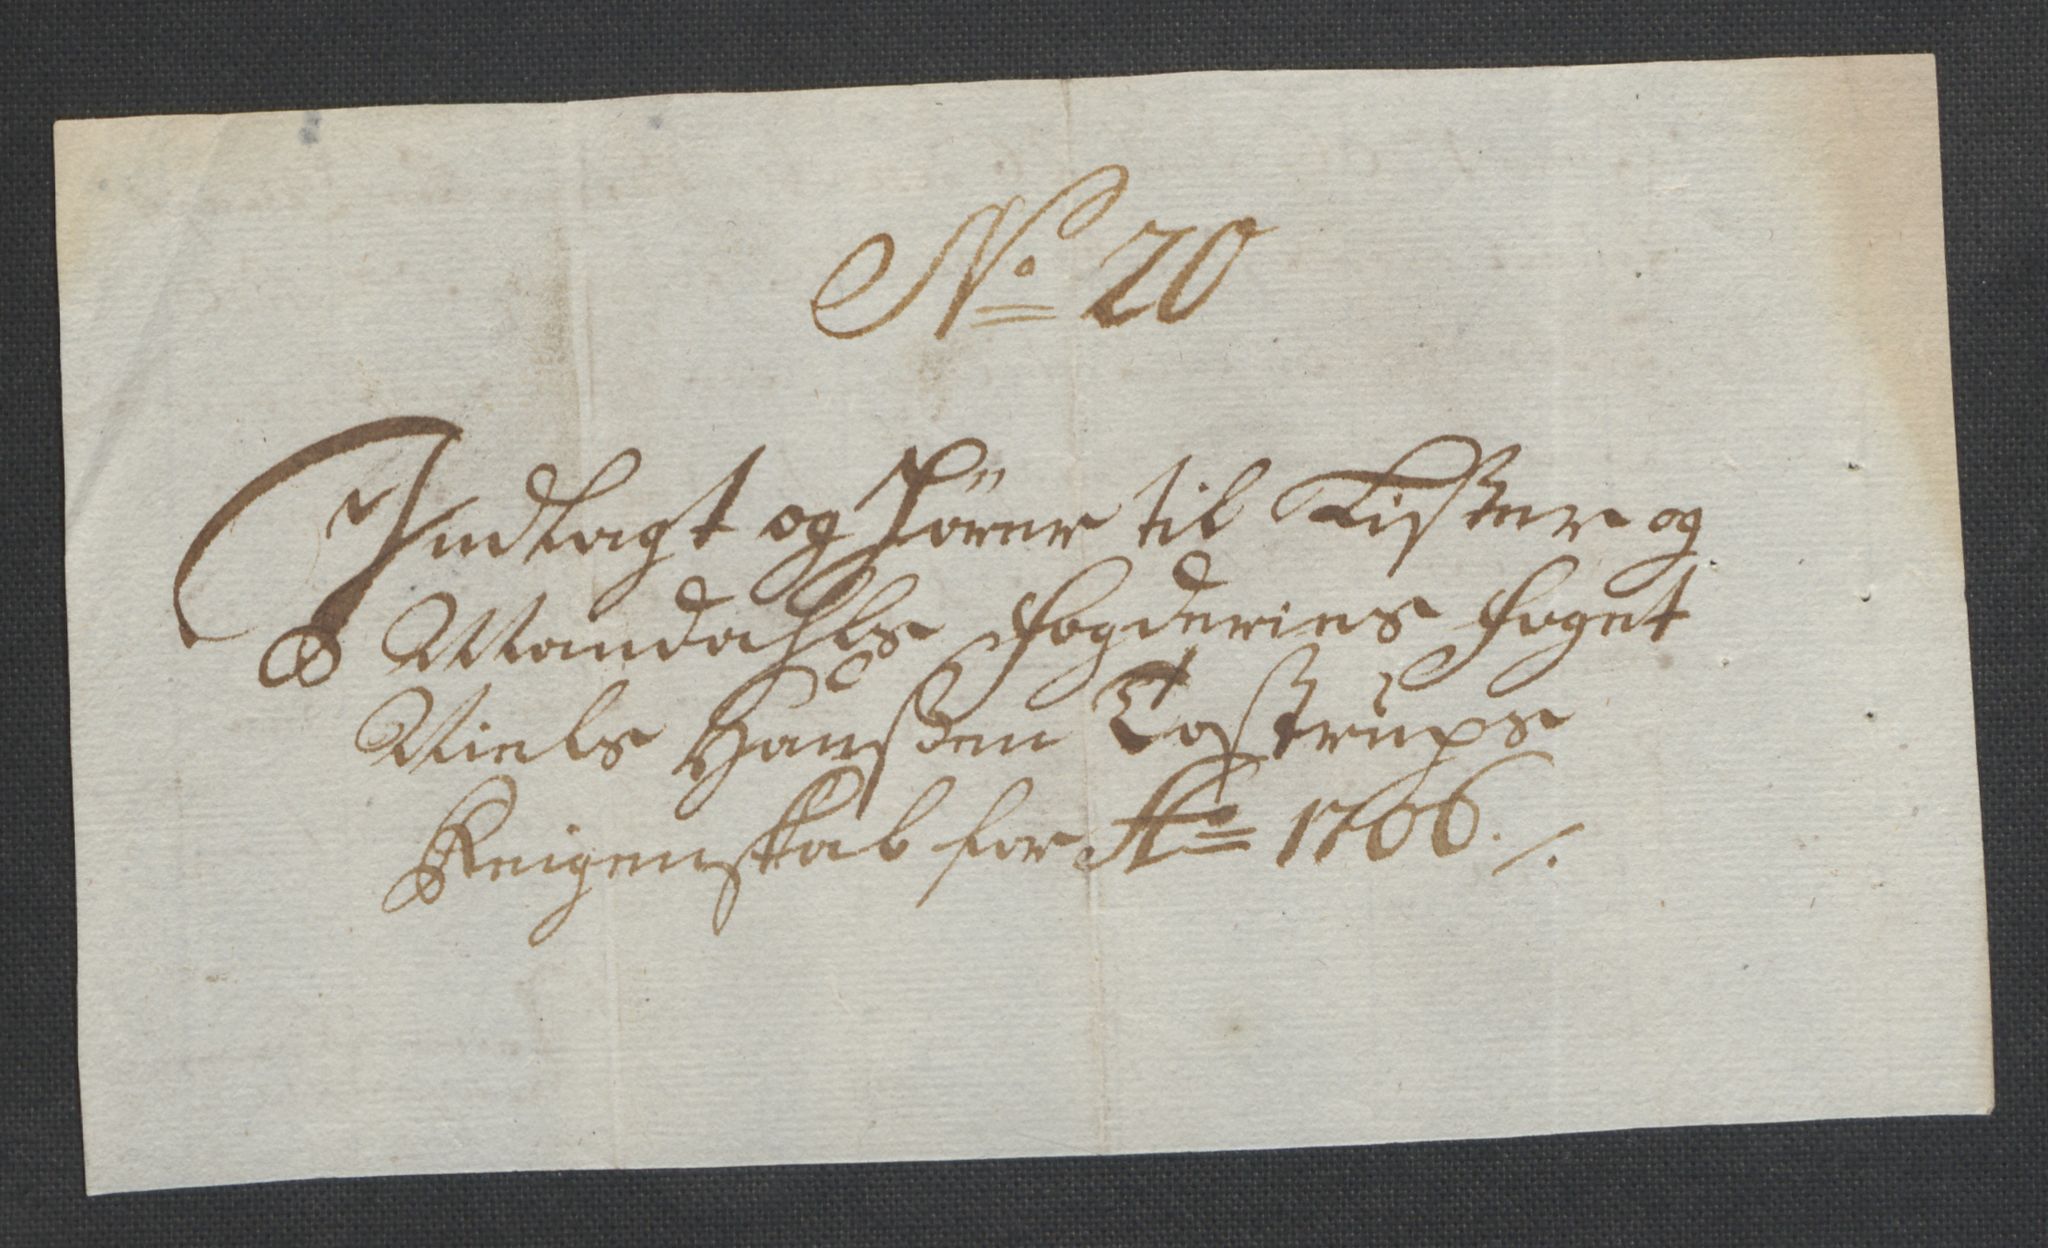 No 20
Indlagt og hörer til Lister og
Mandahls fogderies foget
Niels Hanßen Tostrups
Reigenskab for Ao 1706 ./.